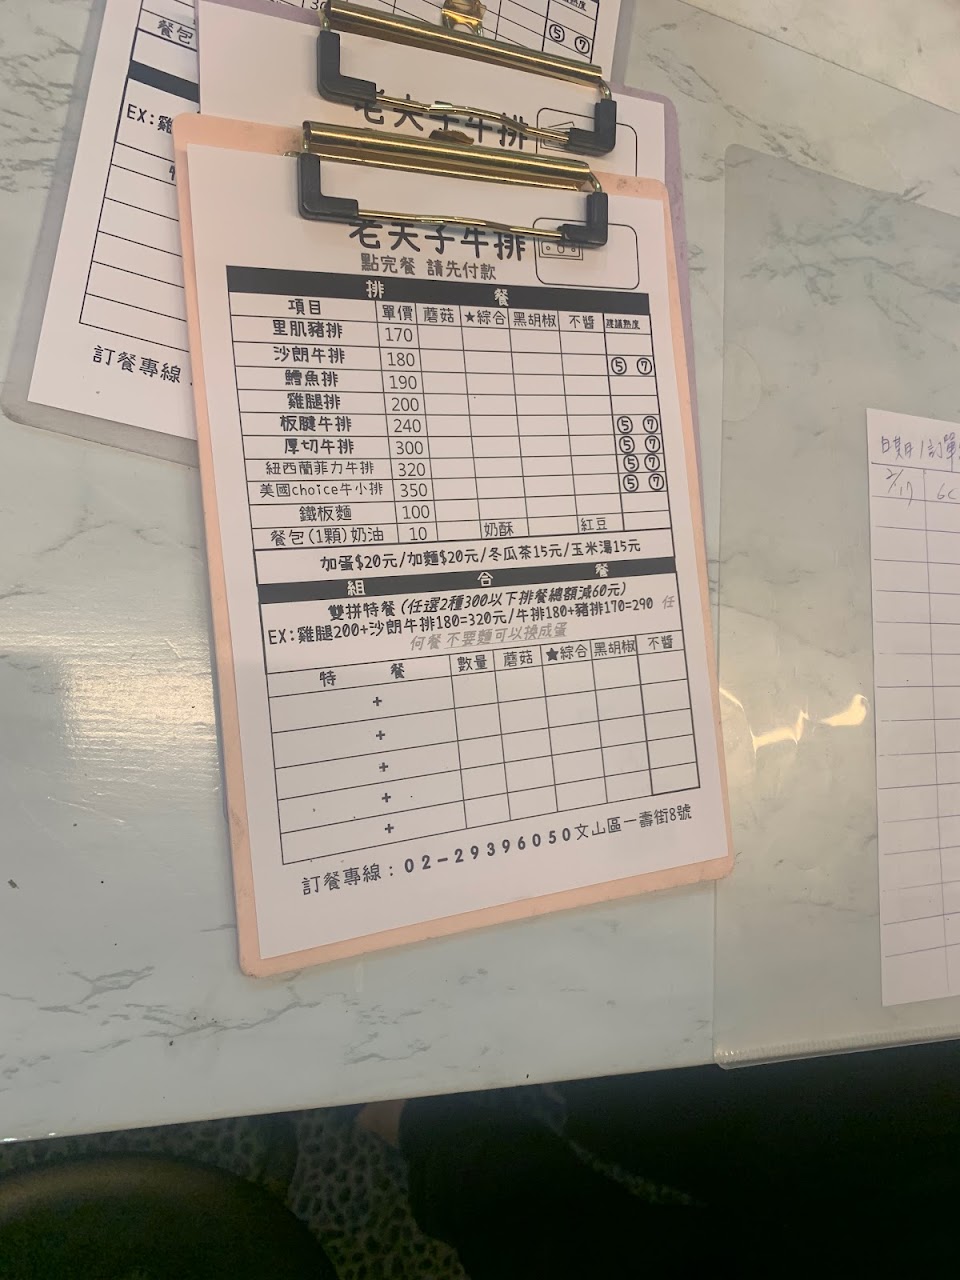 餐包
⑤ ⑦
EX:雞
訂餐專線
老夫子牛排
老夫子牛排
點完餐 請先付款
排 餐
項目 單價 蘑菇 ★綜合 黑胡椒 不醬 建議熟度
里肌豬排 170
沙朗牛排 180 ⑤ ⑦
鱈魚排 190
雞腿排 200
板腱牛排 240 ⑤ ⑦
厚切牛排 300 ⑤ ⑦
紐西蘭菲力牛排 320 ⑤ ⑦
美國choice牛小排 350 ⑤ ⑦
鐵板麵 100
餐包(1顆)奶油 10 奶酥 紅豆
加蛋$20元/加麵$20元/冬瓜茶15元/玉米湯15元
組 合 餐
雙拼特餐(任選2種300以下排餐總額減60元)
EX:雞腿200+沙朗牛排180=320元/牛排180+豬排170=290 任
何餐不要麵可以換成蛋
特 餐 數量 蘑菇 ★綜合 黑胡椒 不醬
+
+
+
+
+
訂餐專線：02-29396050文山區一壽街8號
日期/訂單
2/17